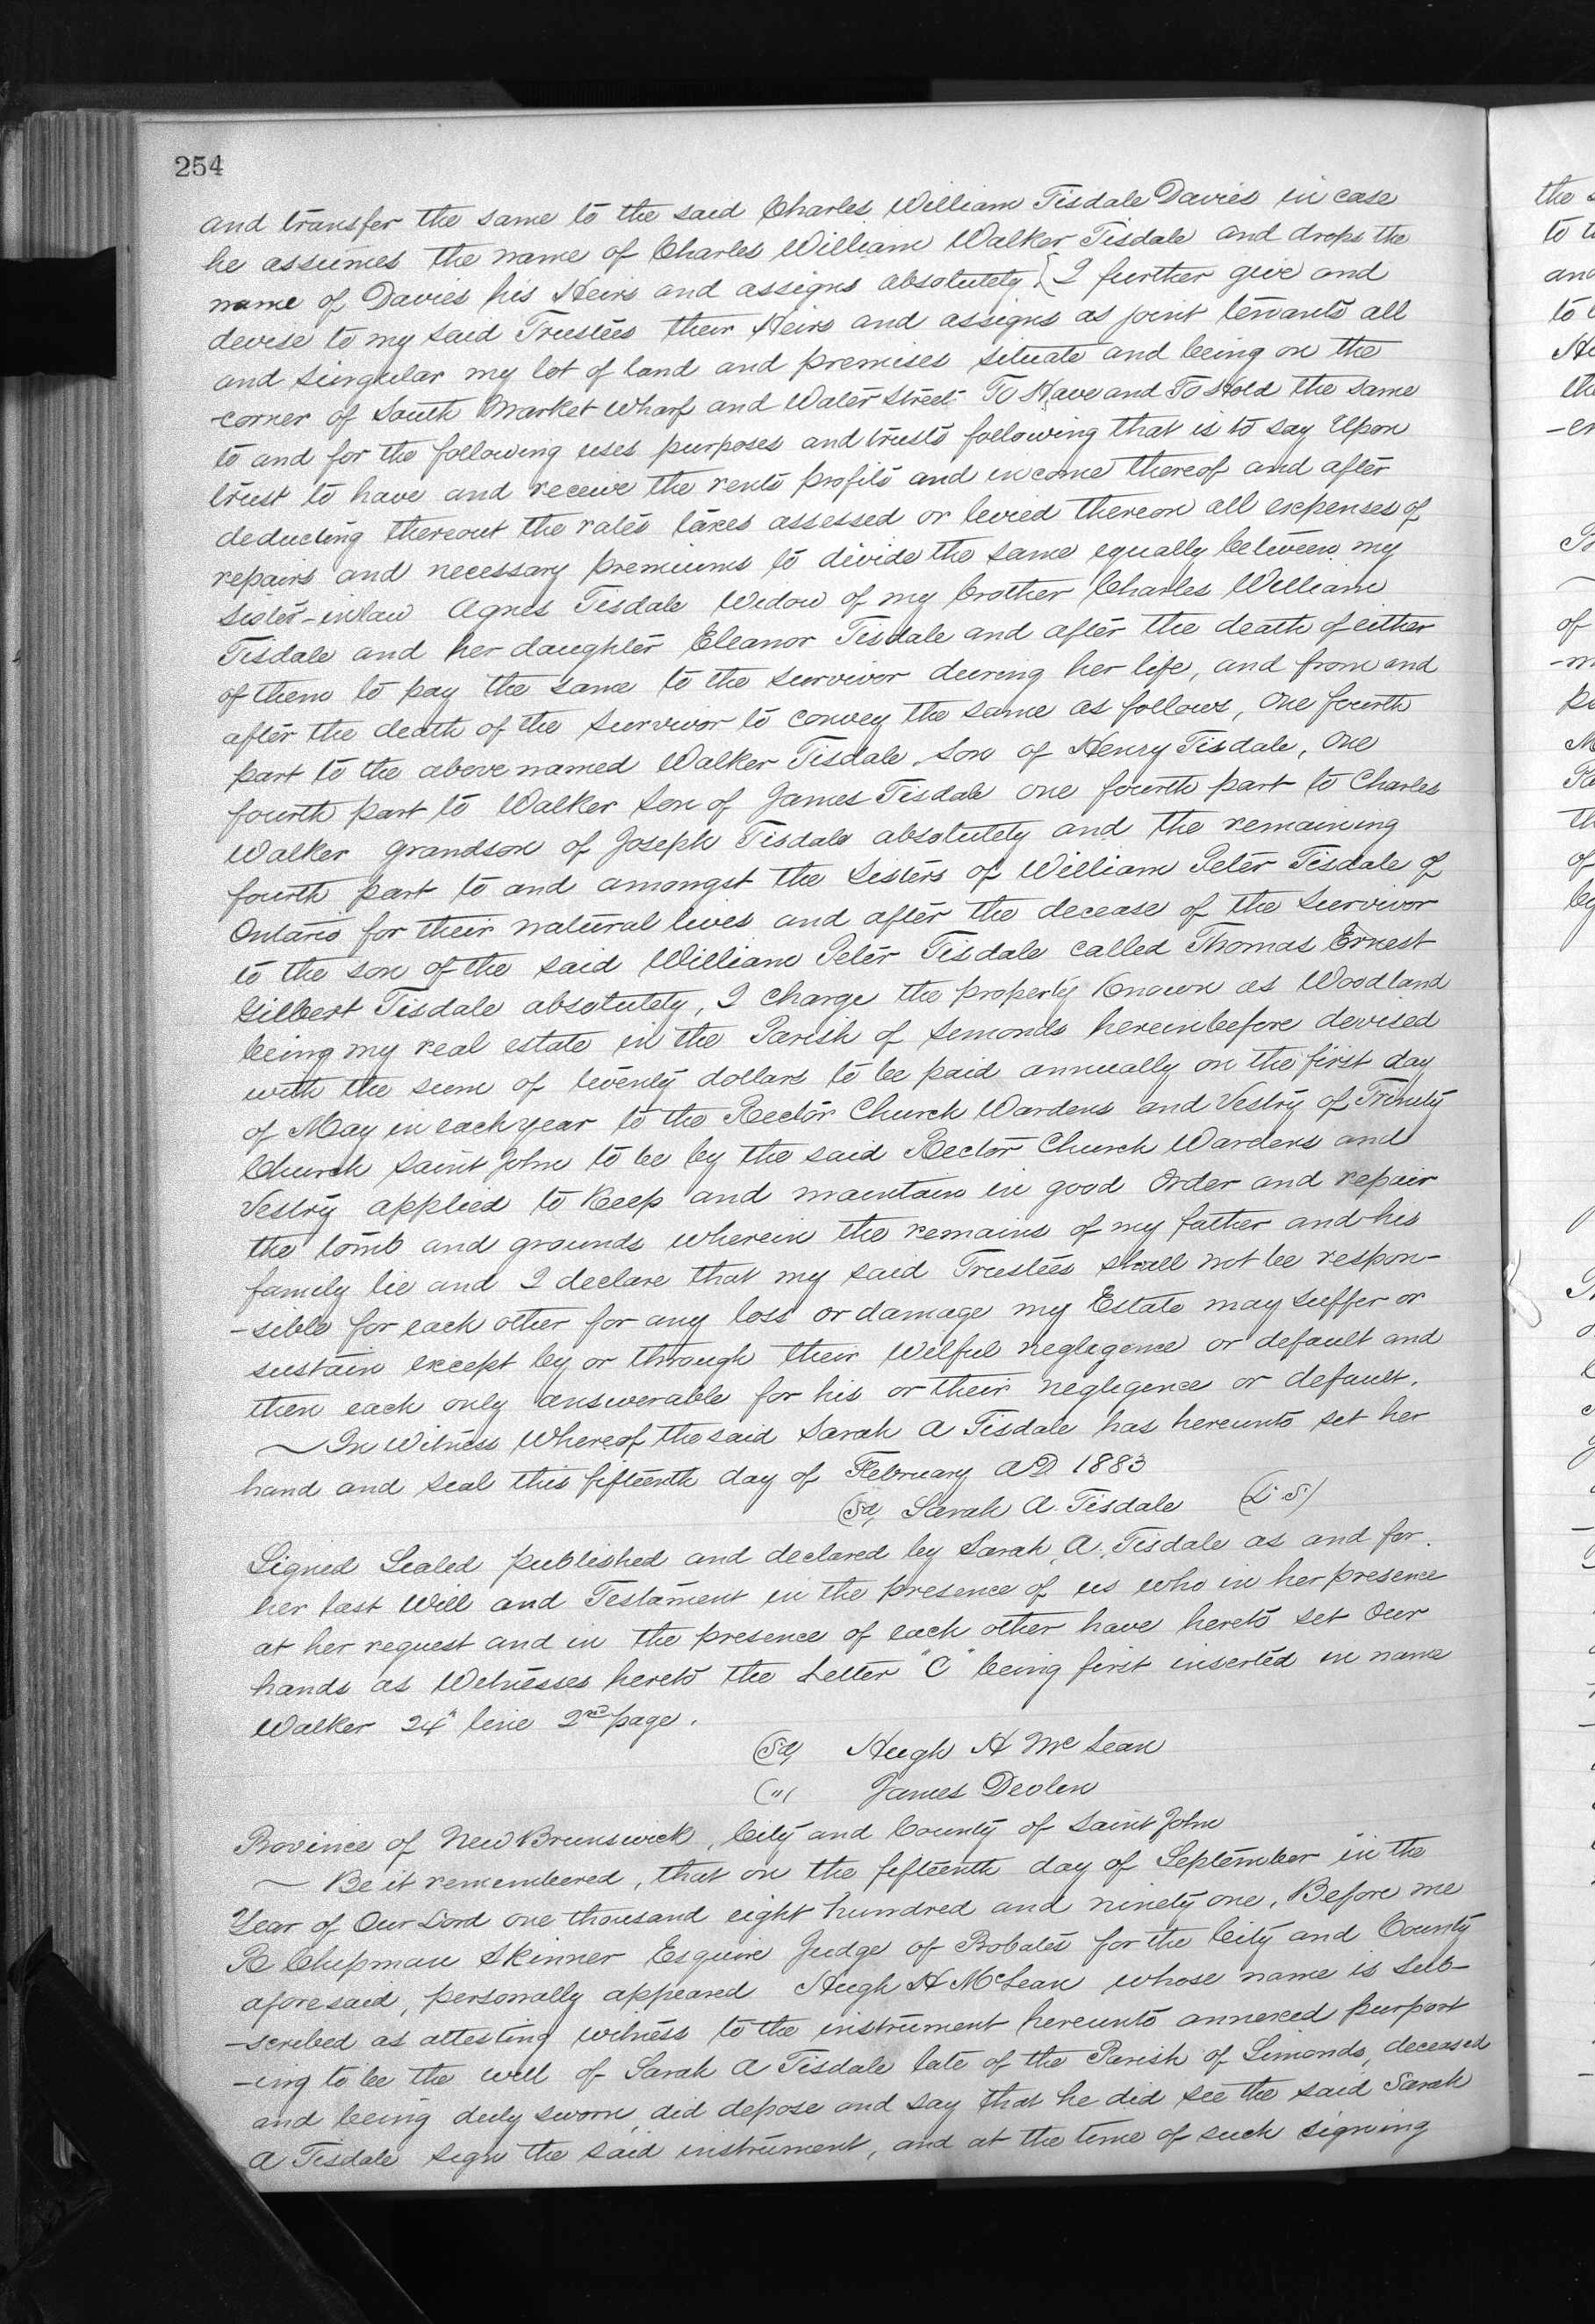 254
and transfer the same to the said Charles William Tisdale Davies in case
he assumes the name of Charles William Walker Tisdale and drops the
name of Davies his Heirs and assigns absolutely { I further give and
devise to my said Trustees their Heirs and assigns as joint tenants all
and singular my lot of land and premises situate and being on the
-corner of South Market Wharf and Water Street To Have and To Hold the same
to and for the following uses purposes and trusts following that is to say Upon
trust to have and receive the rents profits and income thereof and after
deducting thereout the rates taxes assessed or levied thereon all expenses of
repairs and necessary premiums to divide the same equally between my
Sister-in law Agnes Tisdale Widow of my brother Charles William
Tisdale and her daughter Eleanor Tisdale and after the death of either
of them to pay the same to the survivor during her life, and from and
after the death of the survivor to convey the same as follows, One fourth
part to the above named Walker Tisdale, Son of Henry Tisdale, One
fourth part to Walker Son of James Tisdale one fourth part to Charles
Walker grandson of Joseph Tisdale absolutely and the remaining
fourth part to and amongst the Sisters of William Peter Tisdale of
Ontario for their natural lives and after the decease of the survivor
to the son of the said William Peter Tisdale called Thomas Ernest
Gilbert Tisdale absolutely, I charge the property known as Woodland
being my real estate in the Parish of Simonds hereinbefore devised
with the sum of twenty dollars to be paid annually on the first day
of May in each year to the Rector Church Wardens and Vestry of Trinity
Church Saint John to be by the said Rector Church Wardens and
Vestry applied to Keep and maintain in good Order and repair
the tomb and grounds wherein the remains of my father and his
family lie and I declare that my said Trustees shall not be respon-
-sible for each other for any loss or damage my Estate may suffer or
sustain except by or through their wilful negligence or default and
then each only answerable for his or their negligence or default.
In Witness Whereof the said Sarah A Tisdale has hereunto set her
hand and seal this fifteenth day of February AD 1883
(Sd, Sarah A. Tisdale (L.S)
Signed Sealed published and declared by Sarah A. Tisdale as and for
her last Will and Testament in the presence of us who in her presence
at her request and in the presence of each other have hereto set Our
hands as Witnesses hereto the Letter "C" being first inserted in name
Walker 24" line 2nd page.
(Sd, Hugh H McLean
("( James Devlin
Province of New Brunswick, City and County of Saint John
Be it remembered, that on the fifteenth day of September in the
Year of Our Lord one thousand eight hundred and ninety one, Before me
R Chipman Skinner Esquire Judge of Probates for the City and County
aforesaid, personally appeared Hugh H McLean whose name is sub-
-scribed as attesting witness to the instrument hereunto annexed purport
-ing to be the will of Sarah A Tisdale late of the Parish of Simonds, deceased
and being duly sworn, did depose and say that he did see the said Sarah
A Tisdale sign the said instrument, and at the time of such signing